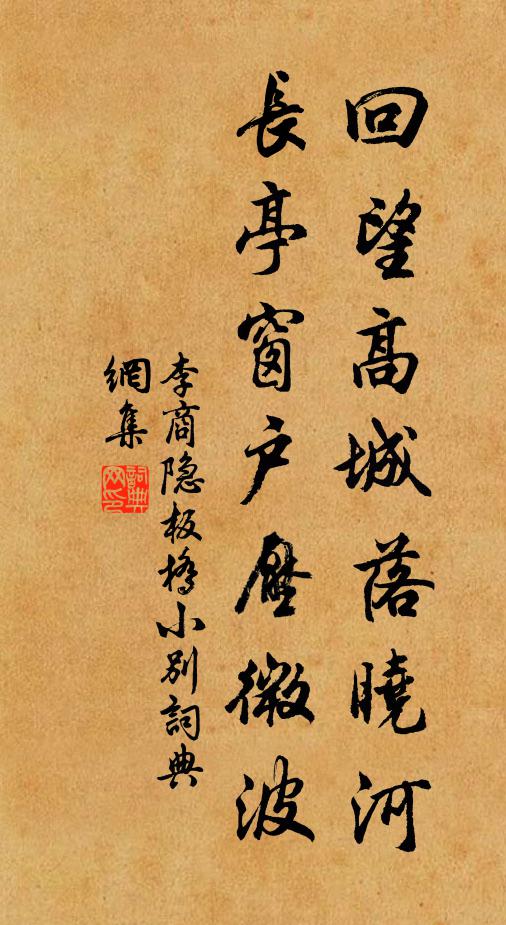 回望高城落曉河
長亭窗戶壓微波
李商隐板橋小别詞典
網集
詞典
网印